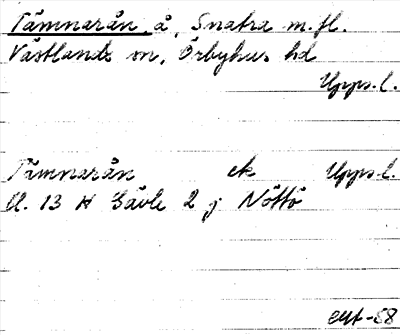 Tämnarån, å, Snatra m.fl.
Västlands sn, Örbyhus hd
Upps.l.
Tämnarån ek Upps.l.
Bl. 13 H Gävle 2 j Nöttö